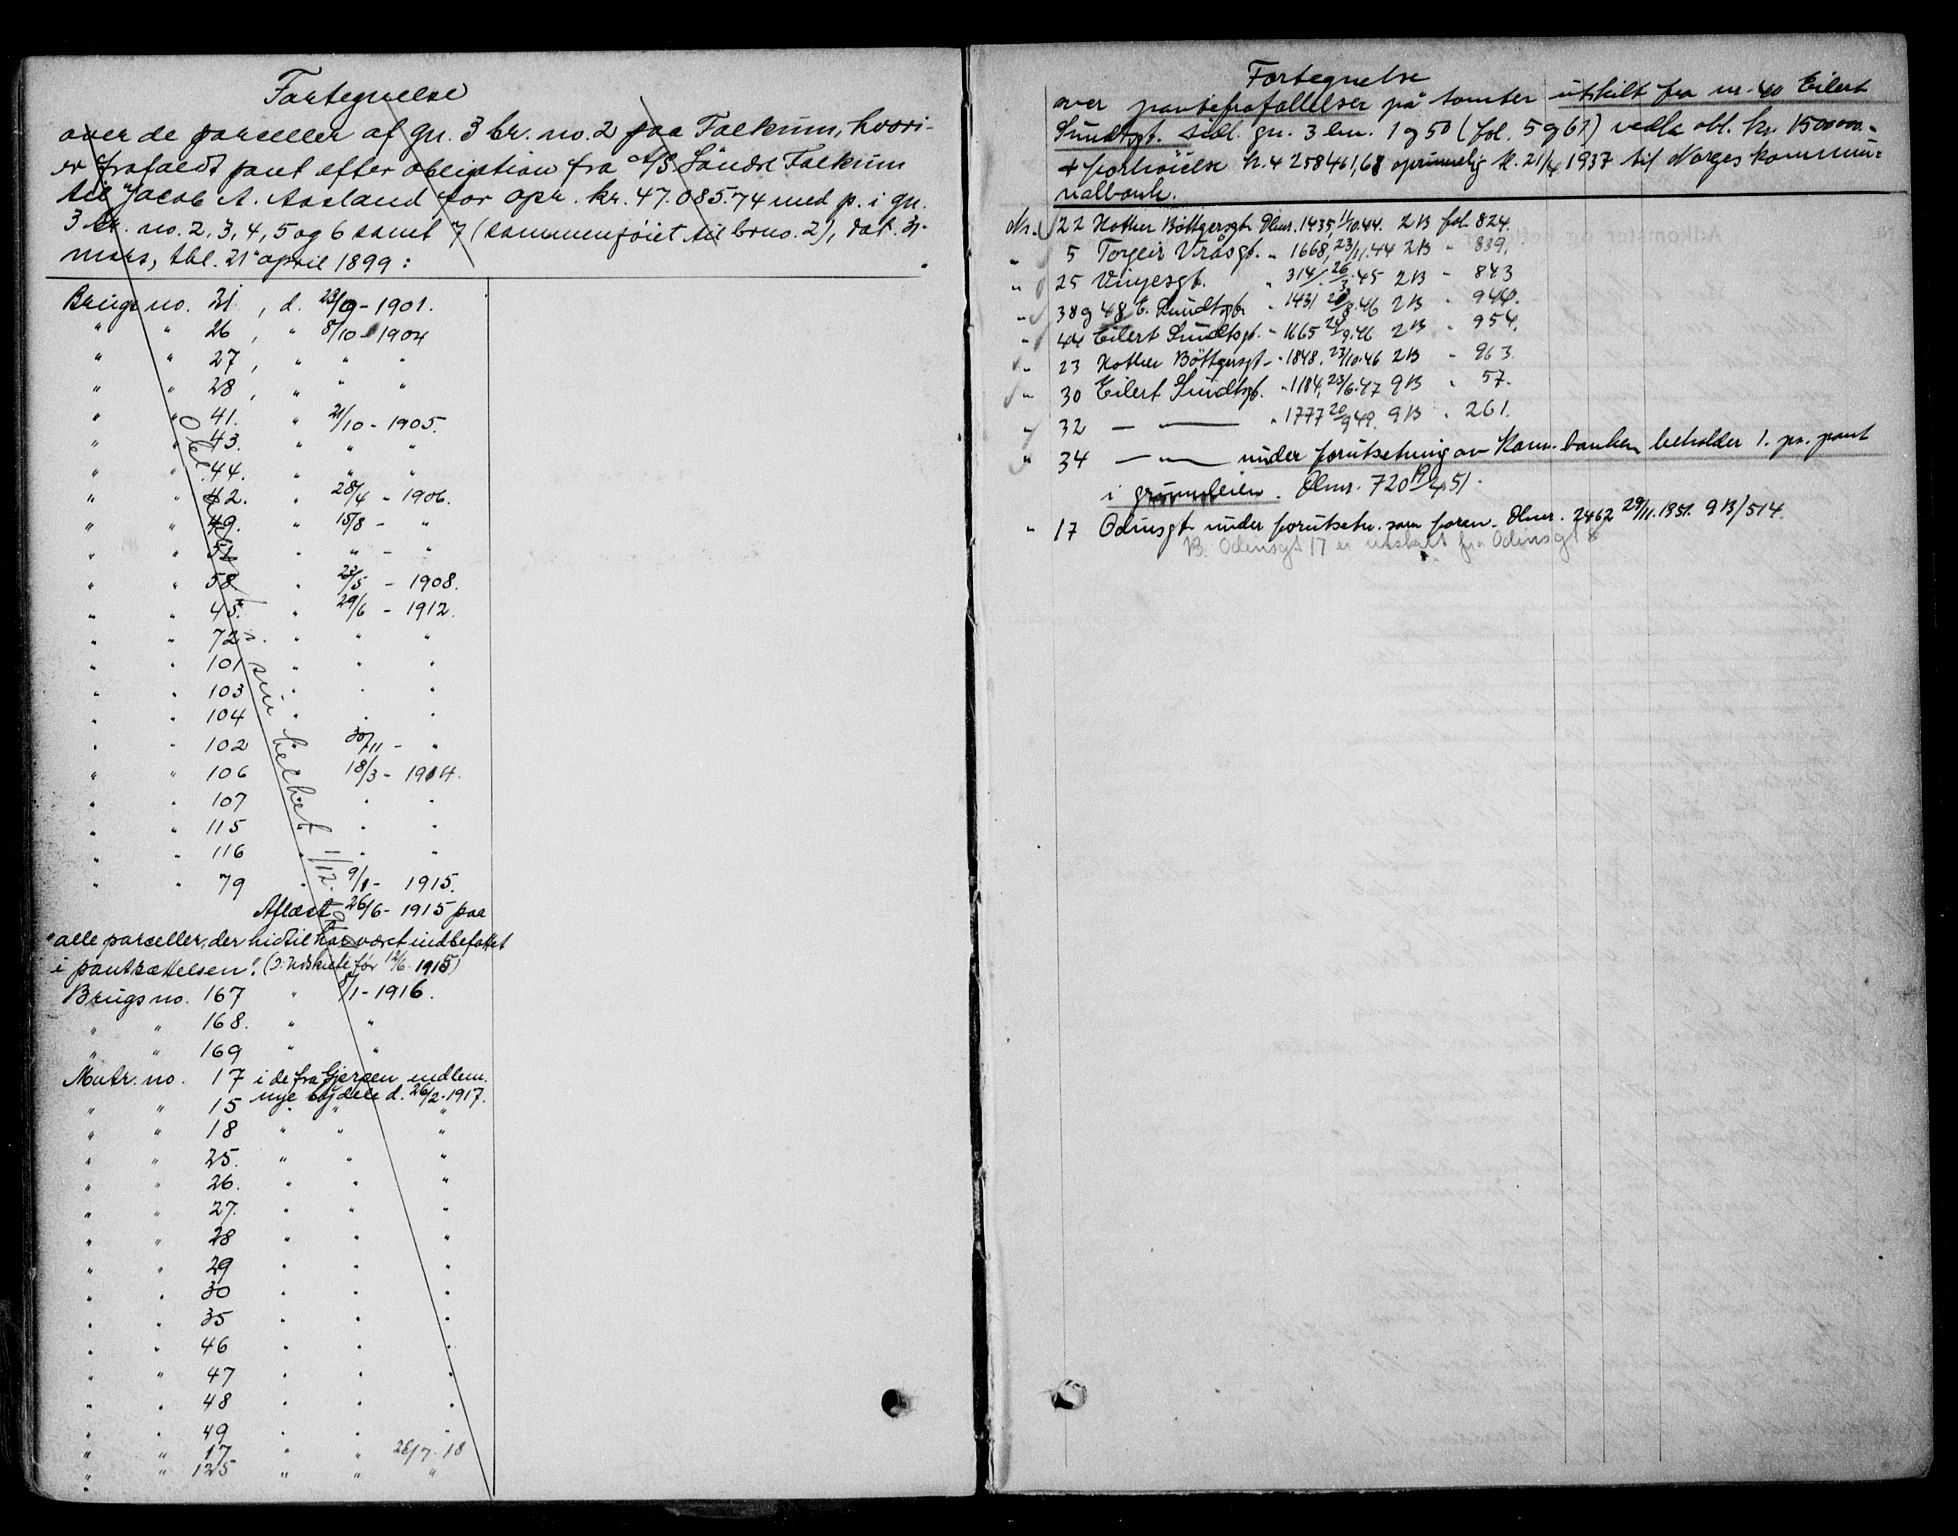 Fortegnelse
over de parceller af gn. 3 br. no. 2 paa Falkum, hvori-
er frafaldt pant efter obligation fra A/S Söndre Falkum
til Jacob A. Aasland for opr. kr. 47.085.74 med p. i gn.
3 br. no. 2, 3, 4, 5 og 6 samt 7 (sammenföiet til brno. 2), dat. 21.
mars, tbl. 21 april 1899:
Brugs no. 21, d. 23/9 - 1901.
" " 26, " 8/10 - 1904
" " 27, " " "
" " 28, " " "
" " 41. " 21/10 - 1905.
" " 43. " " "
" " 44. " " "
" " 42. " 28/4 - 1906.
" " 49. " 15/8 - "
" " 51 " " - "
" " 58 " 23/5 - 1908.
" " 45. " 29/6 - 1912.
" " 72 " " "
" " 101 " " "
" " 103 " " "
" " 104 " " "
" " 102 " 30/11 - "
" " 106 18/3 - 1914.
" " 107 " "
" " 115 " " "
" " 116 " " "
" " 79 " 9/1 - 1915.
Obl. i sin helhet 1/12.
Aflæst 26/6 - 1915 paa
"alle parceller, der hidtil har været indbefattet
i pantsættelsen". (d: udskilte før 12/6 1915)
Brugs no. 167 " 8/1 - 1916.
" " 168. " "
" " 169 " "
Matr. no. 17 i de fra Gjerpen indlem.
" " 15 nye bydele d. 26/2 - 1917.
" " 18 " " "
" " 25. " " "
" " 26. " " "
" " 27. " " "
" " 28 " " "
" " 29 " " "
" " 30 " " "
" " 35 " " "
" " 46 " " "
" " 47 " " "
" " 48 " " "
" " 49 " " "
" " 17 " " 26/7 - 18
" " 125 " " "
Fortegnelse
over pantefrafallelser på tomter utskilt fra nr. 40 Eilert
Sundtsgt. tidl. gn. 3 bn. 1 og 50 (fol. 5 og 61) vedk. obl. kr. 150000.-
+ forhöielse kr. 425846,68 oprinnelig t. 21/4 1937 til Norges kommu-
nalbank.
Nr. 22 Hother Böttgersgt. Dbnr. 1435, 11/10.44. 2B fol. 824.
" 5 Torgeir Vråsgt. " 1668, 23/11.44 2B " 839.
" 25 Vinjesgt. " 314/ 26/3.45 2B " 843
" 38 og 48 E. Sundtsgt. " 1431 20/8.46 2B " 944.
" 44 Eilert Sundtsgt. " 1665 /9.46 2B " 954.
" 23 Hother Böttgersgt. " 1848. 23/10.46 2B " 963.
" 30 Eilert Sundtsgt. " 1184, 23/6.47 9B " 57.
" 32 — " — " 1777 20/9 49. 9B " 261.
" 34 — " — under forutsetning av Kom. banken beholder 1. pr. pant
i grunnleien. Dbnr. 720 19/4 51.
" 17 Odinsgt. under forutsetn. som foran. Dbnr. 2462 29/11.1951. 9B/514.
NB. Odinsgt 17 er utskilt fra Odinsgt 8